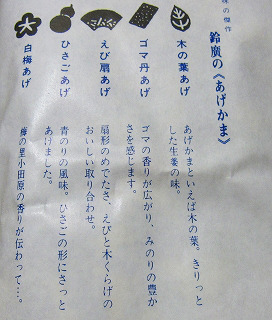 味の傑作
鈴廣の《あげかま》
木の葉あげ
あげかまといえば木の葉。きりっと
した生姜の味。
ゴマ丹あげ
ゴマの香りが広がり、みのりの豊か
さを感じます。
えび扇あげ
扇形のめでたさ、えびと木くらげの
おいしい取り合わせ。
ひさごあげ
青のりの風味。ひさごの形にさっと
あげました。
白梅あげ
梅の里小田原の香りが伝わって…。